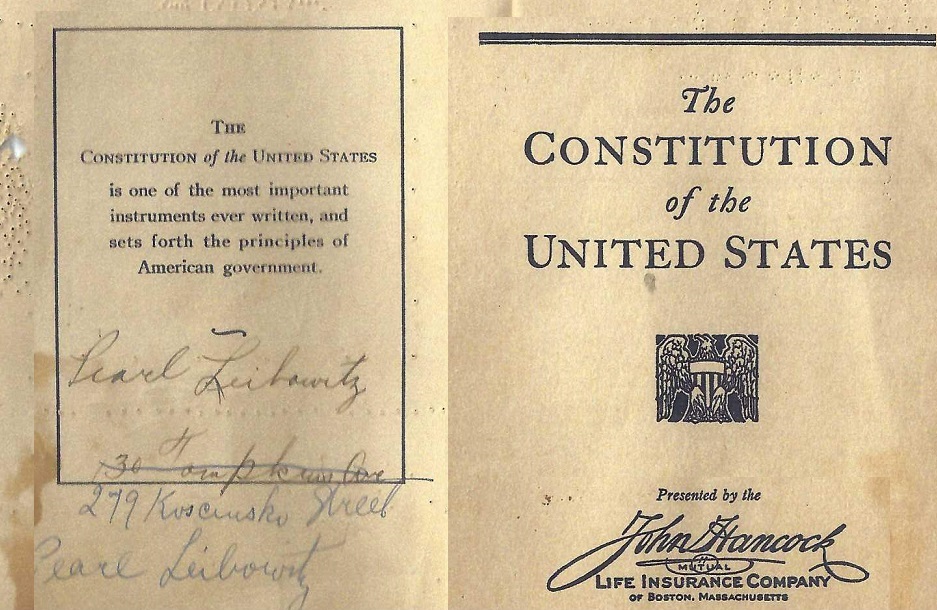 THE
CONSTITUTION of the UNITED STATES
is one of the most important
instruments ever written, and
sets forth the principles of
American government.
Pearl Leibowitz
30 Tompkins Ave
279 Koscinsko Street
Pearl Leibowitz
The
CONSTITUTION
of the
UNITED STATES
Presented by the
John Hancock
MUTUAL
LIFE INSURANCE COMPANY
OF BOSTON, MASSACHUSETTS